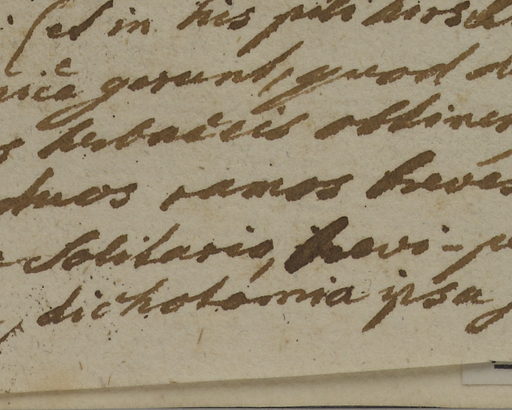 sed in his pili hirsuti
gerunt, quod
herbaceis obtinen
duos ramos breves
solitario, brevi-p
, dichotomia ipsa